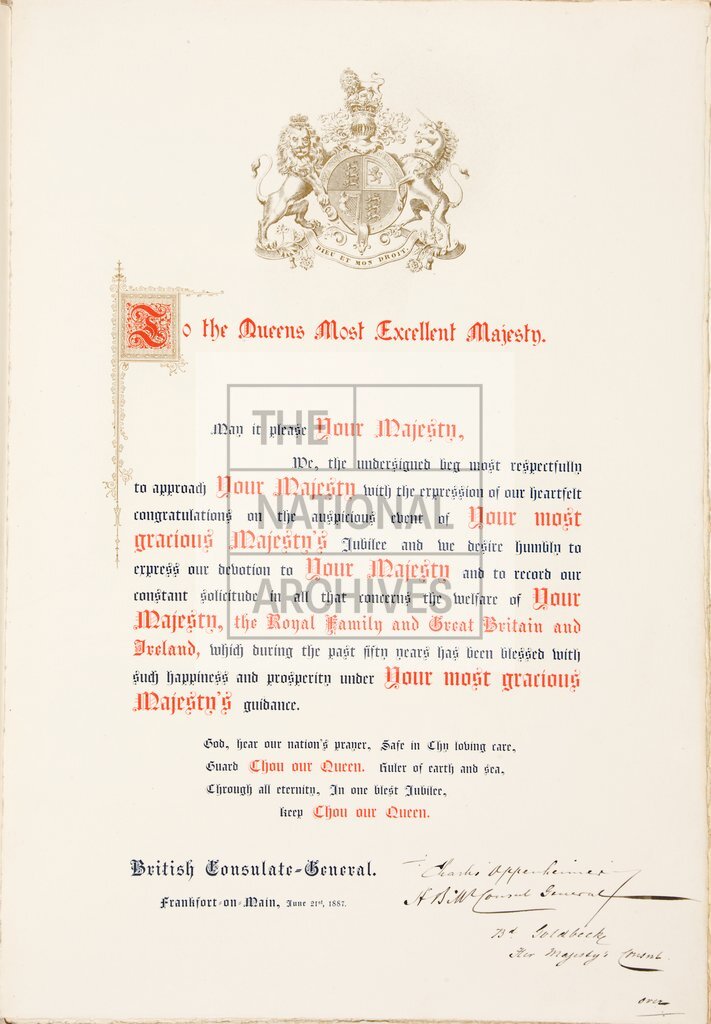 DIEU ET MON DROIT.
To the Queens Most Excellent Majesty.
May it please Your Majesty,
We, the undersigned beg most respectfully
to approach Your Majesty with the expression of our heartfelt
congratulations on the auspicious event of Your most
gracious Majesty's Jubilee and we desire humbly to
express our devotion to Your Majesty and to record our
constant solicitude in all that concerns the welfare of Your
Majesty, the Royal Family and Great Britain and
Ireland, which during the past fifty years has been blessed with
such happiness and prosperity under Your most gracious
Majesty's guidance.
God, hear our nation's prayer, Safe in Thy loving care,
Guard Thou our Queen. Ruler of earth and sea,
Through all eternity, In one blest Jubilee,
keep Thou our Queen.
British Consulate-General.
Frankfort-on-Main, June 21st, 1887.
Charles Oppenheimer
H B Ms Consul General
Bd Goldbeck
Her Majesty's Consul.
over
THE
NATIONAL
ARCHIVES